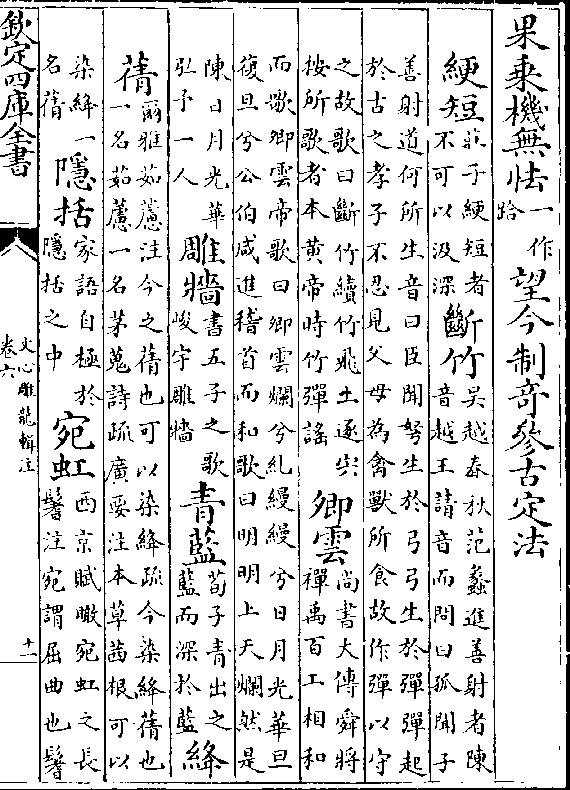 果乗機無怯一作跲望今制奇參古定法
綆短莊子綆短者不可以汲深斷竹吳越春秋范蠡進善射者陳音越王請音而問曰孤聞子
善射道何所生音曰臣聞弩生於弓弓生於彈彈起於古之孝子不忍見父母為禽獸所食故作彈以守
之故歌曰斷竹續竹飛土逐宍按所歌者本黄帝時竹彈謡卿雲尚書大傳舜將禪禹百工相和
而歌卿雲帝歌曰卿雲爛兮糺縵縵兮日月光華旦復旦兮公伯咸進稽首而和歌曰明明上天爛然是
陳日月光華弘予一人雕牆書五子之歌峻宇雕牆青藍荀子青出之藍而深於藍絳
蒨爾雅茹藘注今之蒨也可以染絳疏今染絳蒨也一名茹藘一名茅蒐詩疏廣要注本草茜根可以
染絳一名蒨隱括家語自極於隱括之中宛虹西京賦瞰宛虹之長鬐注宛謂屈曲也鬐
欽定四庫全書
文心雕龍輯注
卷六
十一